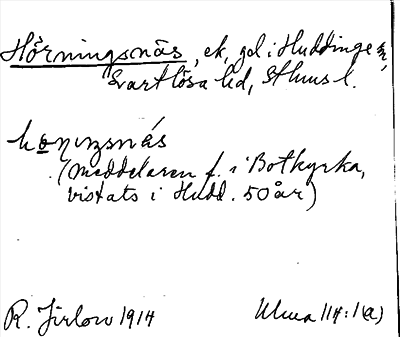 Hörningsnäs, ek, gd i Huddinge sn,
Svartlösa hd, Sthms l.
(meddelaren f. i Botkyrka,
vistats i Hudd. 50 år)
R. Jirlow 1914
Ulma 114:1(a)